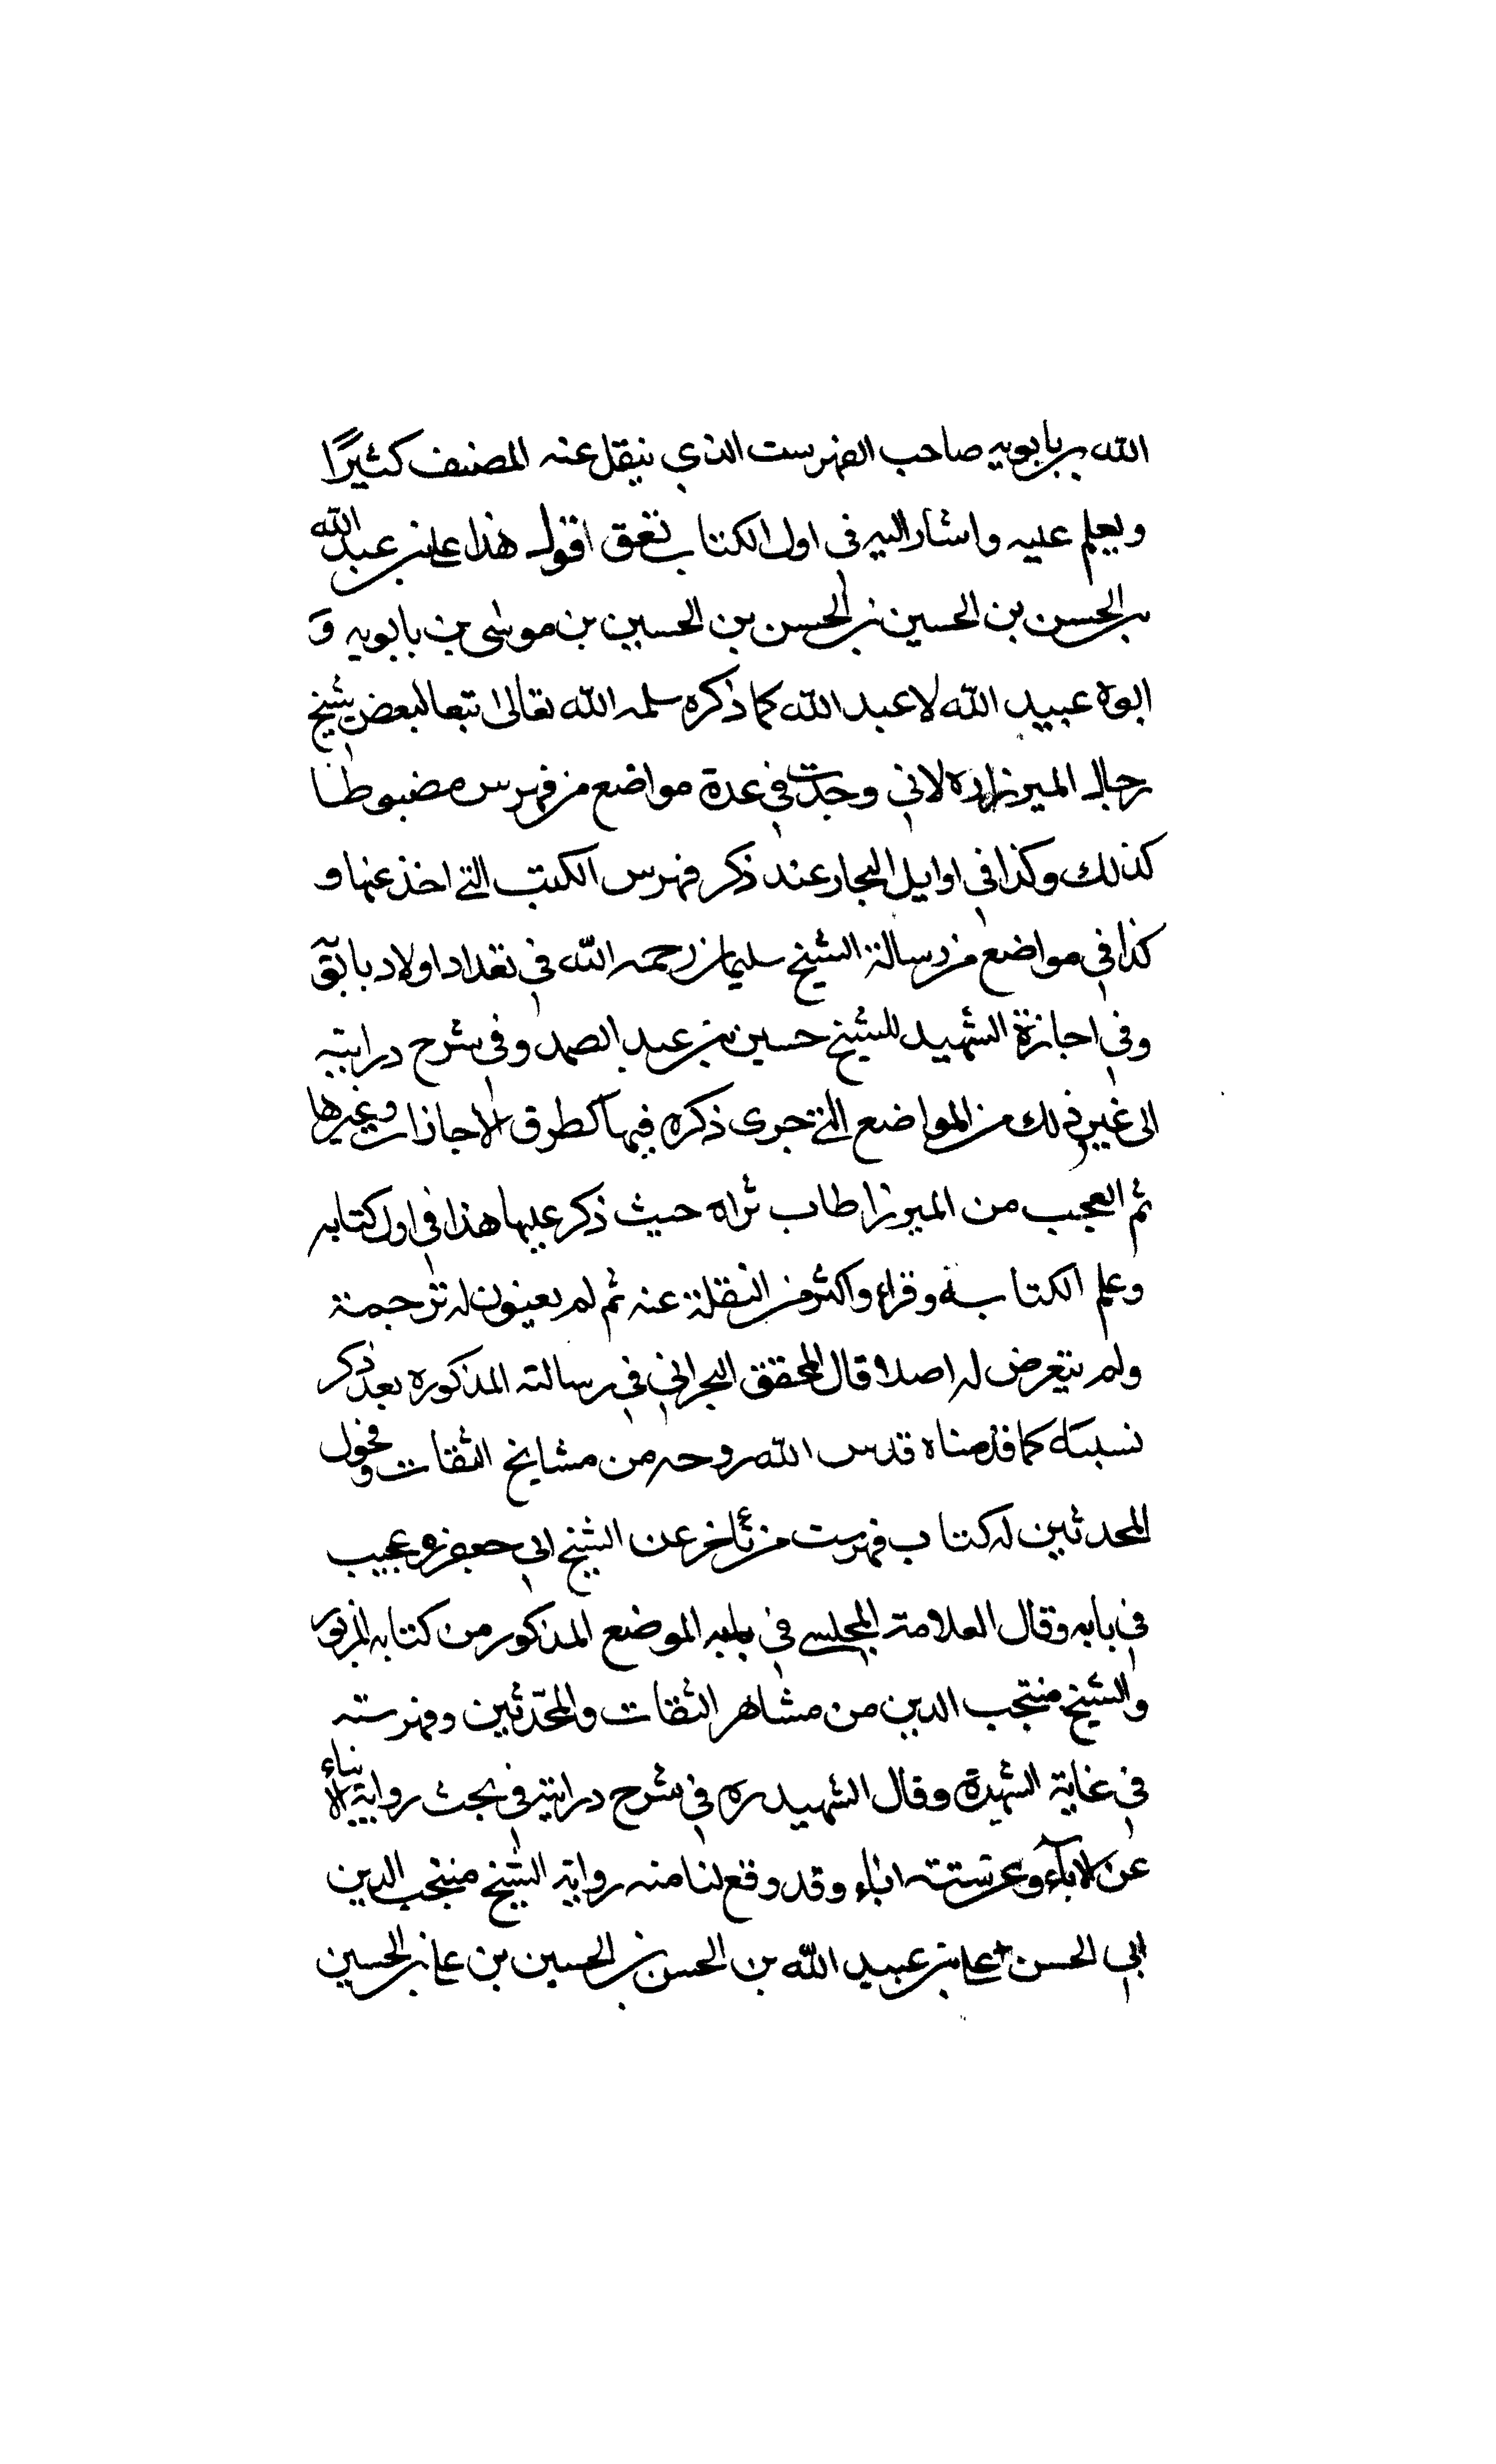 الله بن بابويه صاحب الفهرست الذي ينقل عنه المصنف كثيرًا
ويعلم عليه واشار اليه في اول الكتاب تعق اقول هذا علي بن عبيد الله
بن الحسن بن الحسين بن الحسن بن الحسين بن موسى بن بابويه و
ابوه عبيد الله لا عبد الله كما ذكره سلمه الله تعالى تبعا لبعض نسخ
رجال الميرزا ره لاني وجدت في عدة مواضع من فهرس مضبوطا
كذلك وكذا في اوايل البحار عند ذكر فهرس الكتب التي اخذ عنها و
كذا في مواضع من رسالة الشيخ سليمان رحمه الله في تعداد اولاد بابويه
وفي اجازة الشهيد للشيخ حسين بن عبد الصمد وفي شرح درايته
الى غير ذلك من المواضع التي جرى ذكره فيها كطرق الاجازات وغيرها
ثم العجب من الميرزا طاب ثراه حيث ذكر عليها هذا في اول كتابه
وعلم الكتابه وقراء واكثر من النقلة عنه ثم لم يعنون له ترجمة
ولم يتعرض له اصلا قال المحقق البحراني في رسالته المذكوره بعد ذكر
نسبه كما قدمناه قدس الله روحه من مشايخ الثقات وفحول
المحدثين له كتاب فهرست من تأخر عن الشيخ ابي جعفر وهو عجيب
في بابه وقال العلامة المجلسي في الموضع المذكور من كتابه المزبور
والشيخ منتجب الدين من مشاهر الثقات والمحدّثين وفهرسته
في غاية الشهرة وقال الشهيد ره في شرح درايته في بحث رواية الابناء
عن الاباء وعن ستة اباء وقد وقع لنا منه رواية الشيخ منتجب الدين
ابي الحسن علي بن عبيد الله بن الحسن بن الحسين بن علي بن الحسين